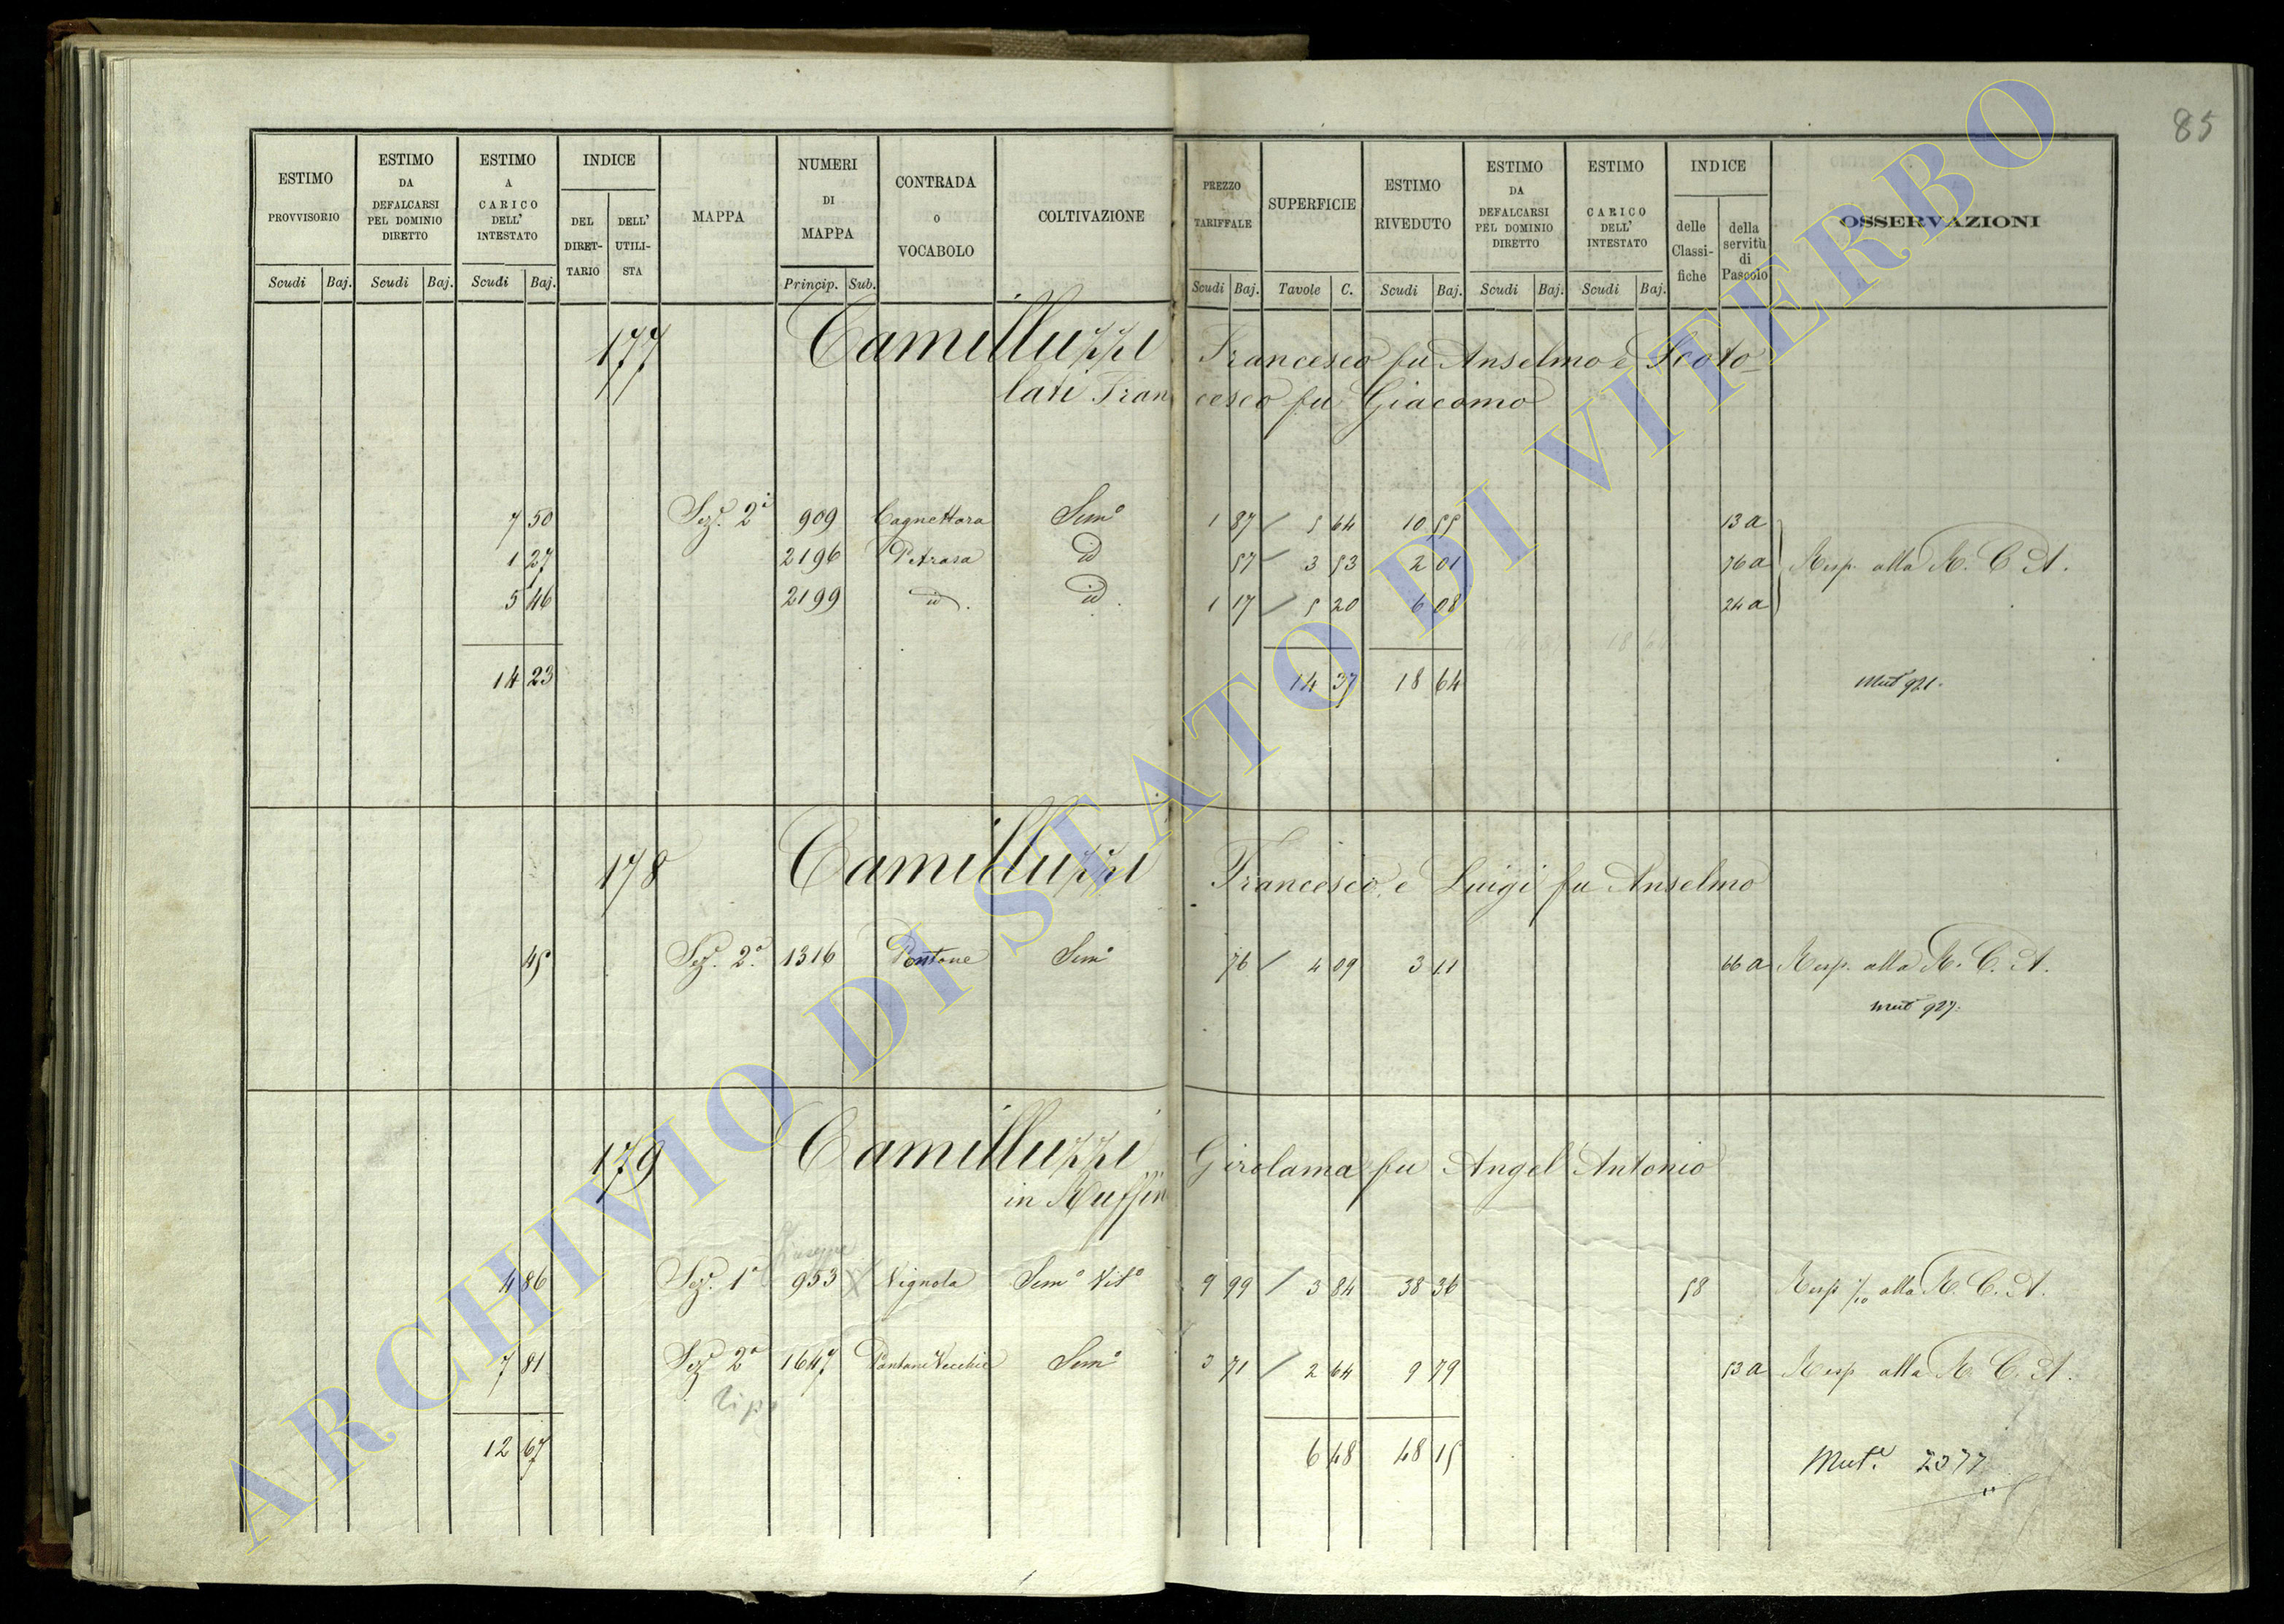 85
ESTIMO PROVVISORIO | ESTIMO DA DEFALCARSI PEL DOMINIO DIRETTO | ESTIMO A CARICO DELL' INTESTATO | INDICE | MAPPA | NUMERI DI MAPPA | CONTRADA O VOCABOLO | COLTIVAZIONE | PREZZO TARIFFALE | SUPERFICIE | ESTIMO RIVEDUTO | ESTIMO DA DEFALCARSI PEL DOMINIO DIRETTO | ESTIMO A CARICO DELL' INTESTATO | INDICE | OSSERVAZIONI
DEL DIRETTARIO | DELL' UTILISTA | delle Classifiche | della servitù di Pascolo
Scudi | Baj. | Scudi | Baj. | Scudi | Baj. | Princip. | Sub. | Scudi | Baj. | Tavole | C. | Scudi | Baj. | Scudi | Baj. | Scudi | Baj.
177 Camilluzzi Francesco fu Anselmo e Scoto-
lati Francesco fu Giacomo
7 50 Sez. 2ª 909 Cagnettara Sem° 1 87 / 5 64 10 55 13 a
1 27 2196 Petrara id 57 / 3 53 2 01 76 a Resp. alla R. C. A.
5 46 2199 id. id. 1 17 / 5 20 6 08 24 a
14 23 14 37 18 64 Mut 921.
178 Camilluzzi Francesco e Luigi fu Anselmo
45 Sez. 2ª 1316 Pontone Sem° 76 / 4 09 3 11 66 a Resp. alla R. C. A.
Mut 927.
179 Camilluzzi Girolama fu Angel'Antonio
in Ruffin
Giuseppe
4 86 Sez. 1ª 953 X Vignola Sem° Vit° 9 99 / 3 84 38 36 58 Resp 1/10 alla R. C. A.
7 81 Sez. 2ª 1647 Pontane Vecchie Sem° 3 71 / 2 64 9 79 53 a Resp alla R. C. A.
12 67 6 48 48 15 Mut.e 2377
ARCHIVIO DI STATO DI VITERBO